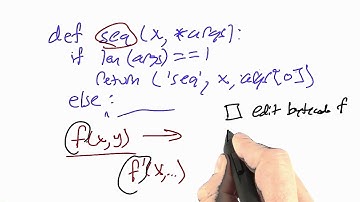 def seq (x, *args):
if len(args)==1
return ('seq', x, args[0])
else:
f(x,y) →
edit bytecode f
f'(x,...)